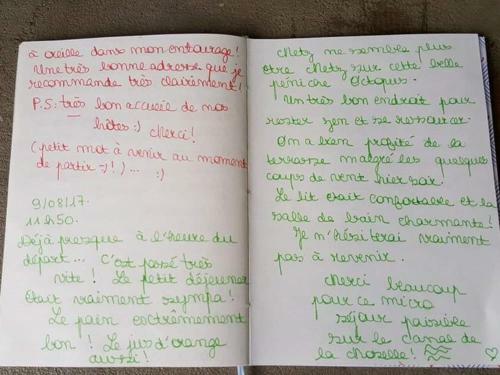 à oreille dans mon entourage!
Une très bonne adresse que je
recommande très clairement!
P.S: très bon accueil de nos
hôtes :) Merci!
(petit mot à venir au moment
de partir =)!)...
:)
9/08/17.
11h50.
Déjà presque à l'heure du
départ... C'est passé très
vite! Le petit déjeuner
était vraiment sympa!
Le pain extrêmement
bon! Le jus d'orange
aussi!
Chetz me semble plus
être Chetz sur cette belle
péniche Octopus.
Un très bon endroit pour
rester zen et se ressourcer.
On a bien profité de la
terrasse malgré les quelques
coups de vent hier soir.
Le lit était confortable et la
salle de bain charmante!
Je n'hésiterai vraiment
pas à revenir.
Merci beaucoup
pour ce micro
séjour paisible
sur le canal de
la Moselle!